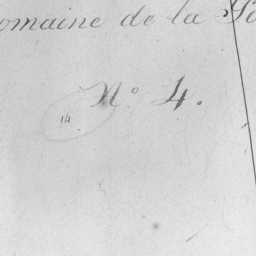 omaine de la
N° 4.
14